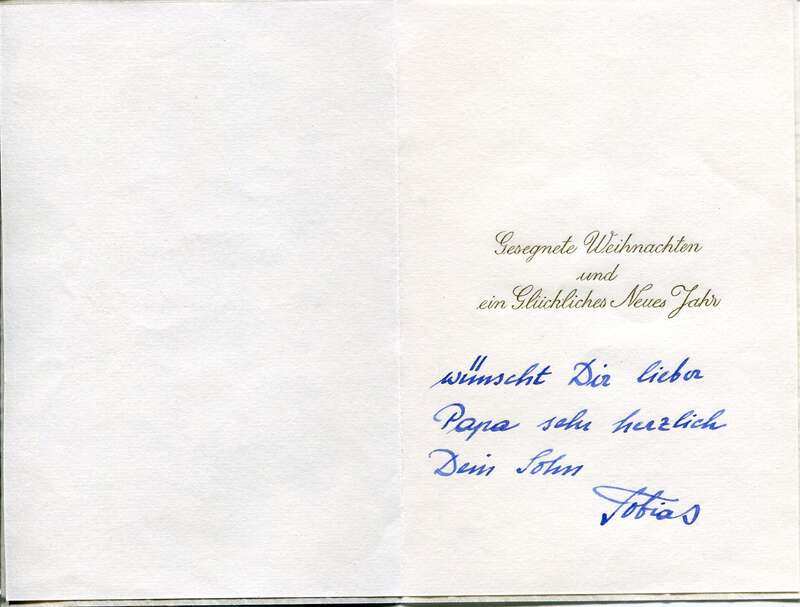 Gesegnete Weihnachten
und
ein Glückliches Neues Jahr
wünscht Dir lieber
Papa sehr herzlich
Dein Sohn
Tobias